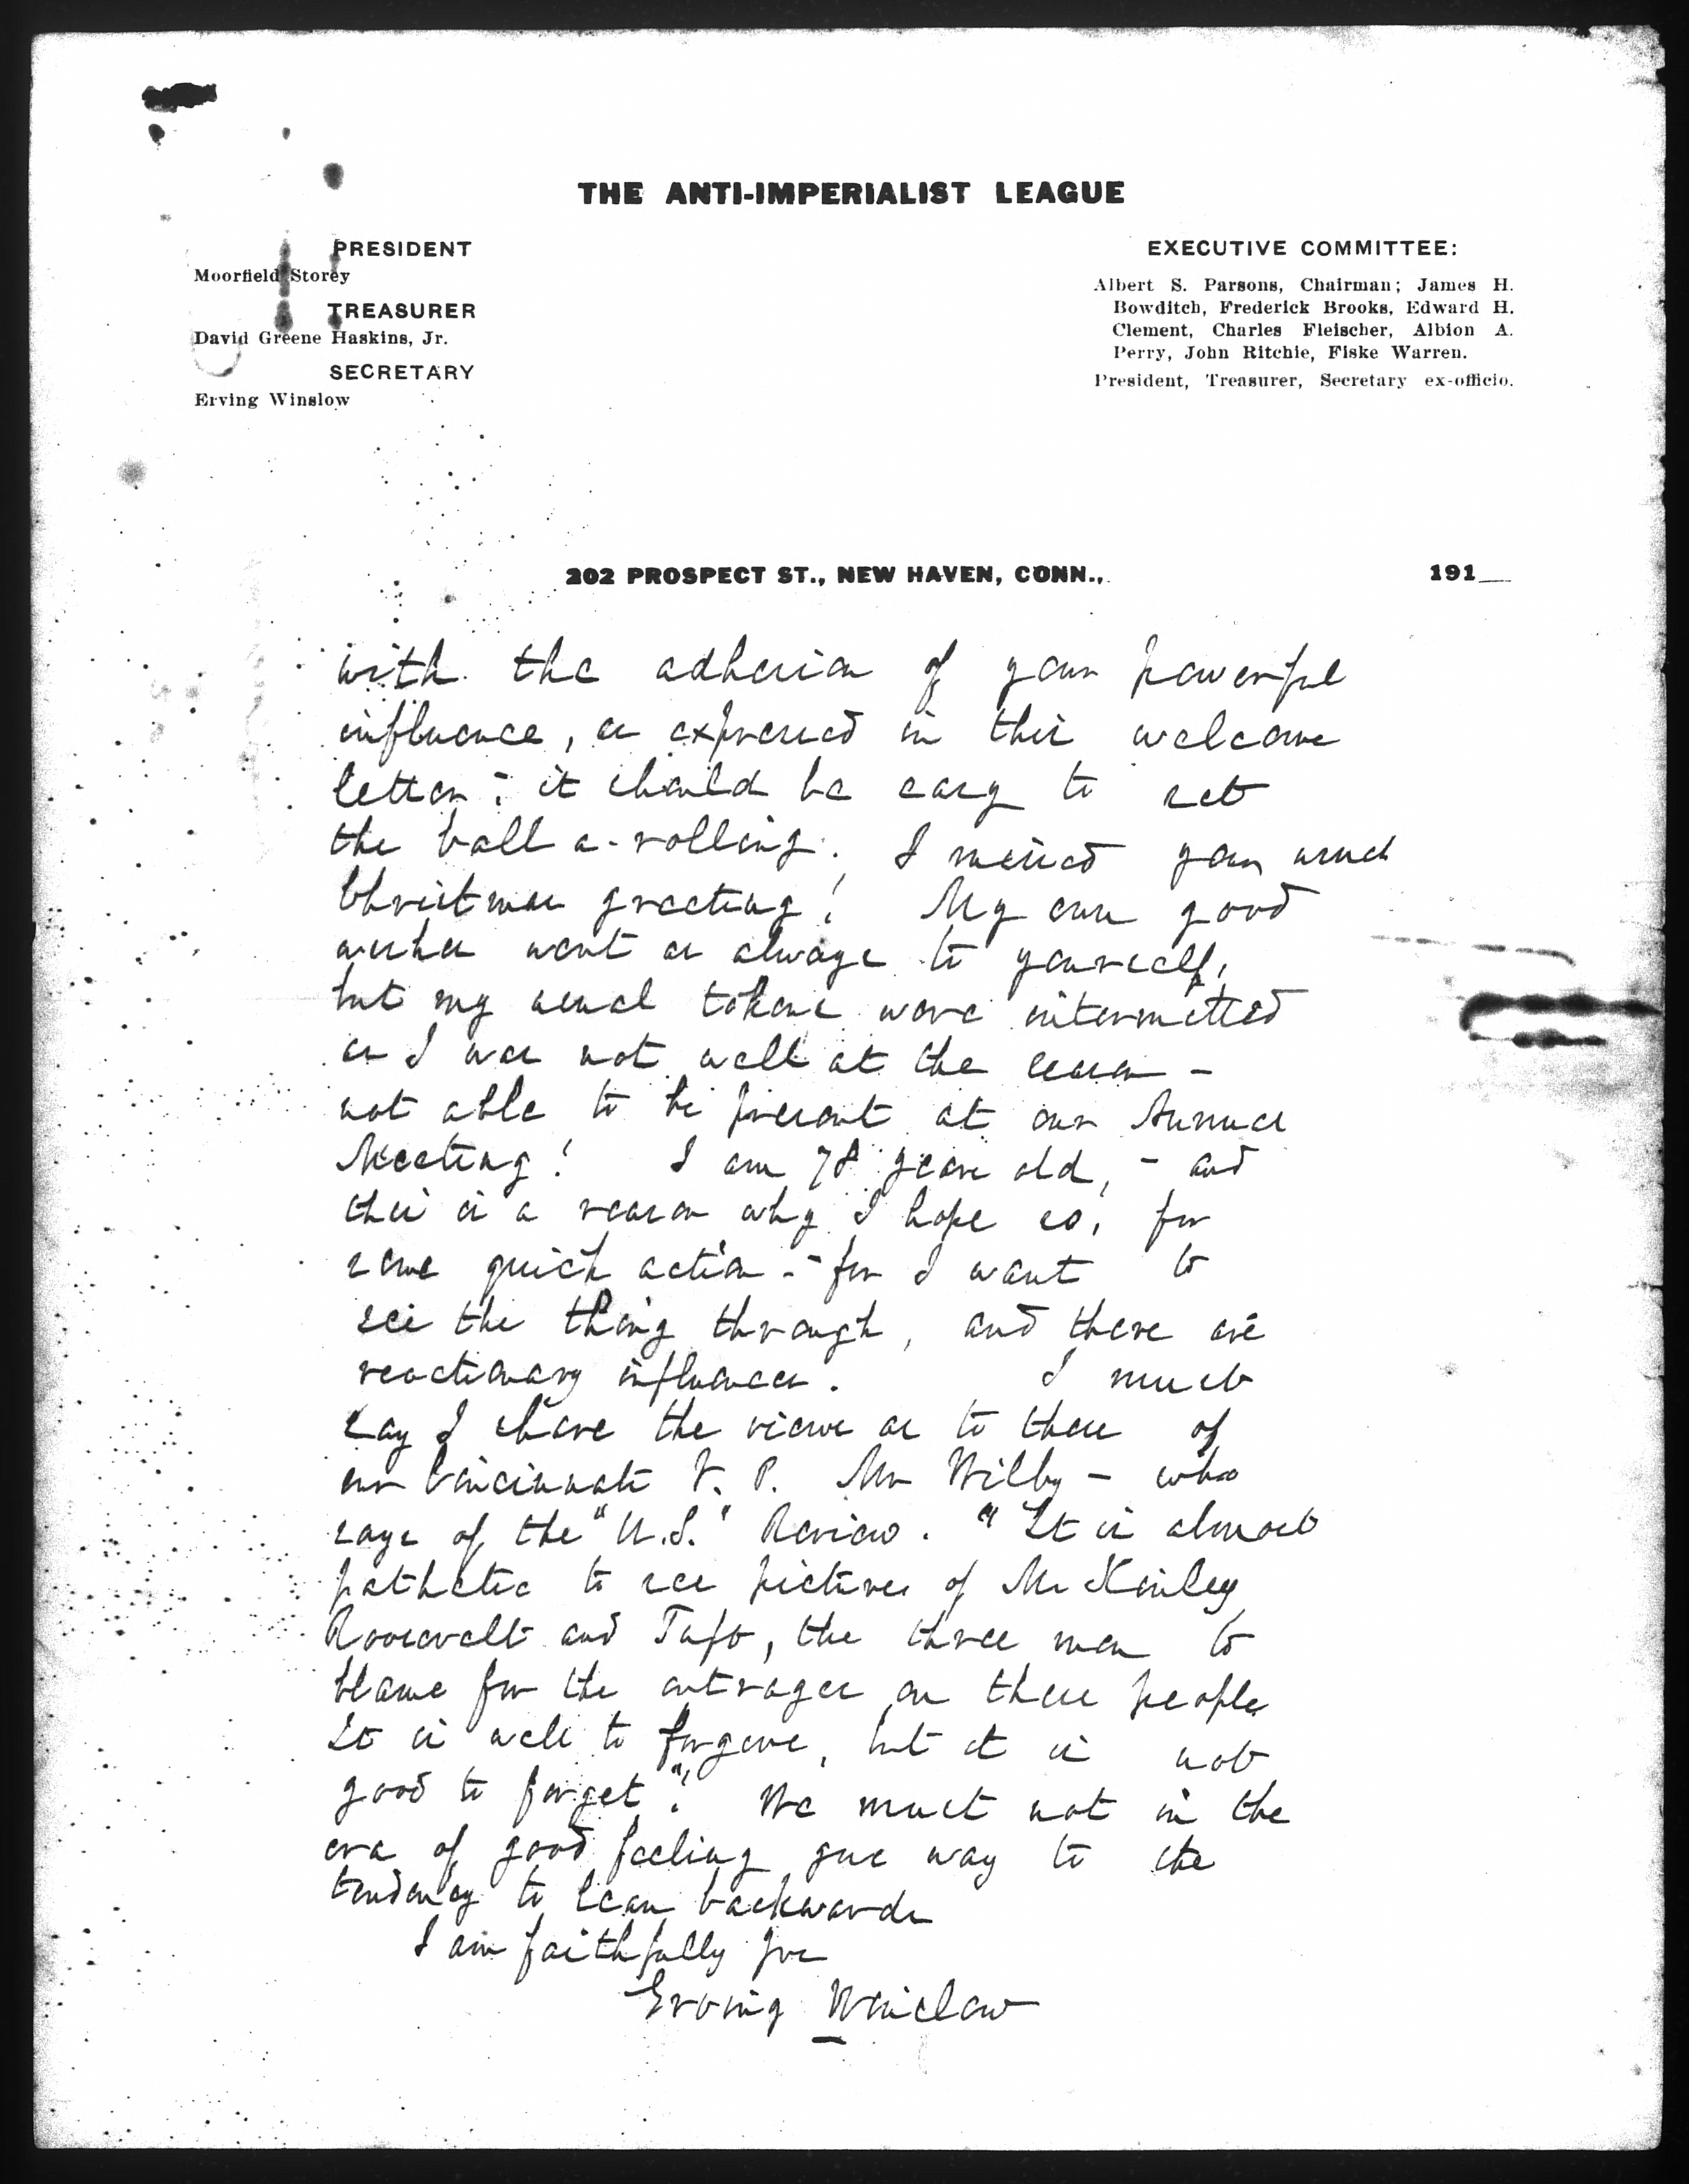 THE ANTI-IMPERIALIST LEAGUE
PRESIDENT
Moorfield Storey
TREASURER
David Greene Haskins, Jr.
SECRETARY
Erving Winslow
EXECUTIVE COMMITTEE:
Albert S. Parsons, Chairman; James H.
Bowditch, Frederick Brooks, Edward H.
Clement, Charles Fleischer, Albion A.
Perry, John Ritchie, Fiske Warren.
President, Treasurer, Secretary ex-officio.
202 PROSPECT ST., NEW HAVEN, CONN., 191__
with the adhesion of your powerful
influence, as expressed in this welcome
letter:- it should be easy to set
the ball a-rolling. I missed your usual
Christmas greeting! My own good
wishes went as always to yourself,
but my usual tokens were intermitted
as I was not well at the season -
not able to be present at our Annual
Meeting! I am 78 years old, - and
this is a reason why I hope so, for
some quick action - for I want to
see the thing through, and there are
reactionary influences. I must
say I share the views as to these of
our Cincinnati V. P. Mr Wilby - who
says of the "U.S." Review. "It is almost
pathetic to see pictures of McKinley
Roosevelt and Taft, the three men to
blame for the outrages on these people
It is well to forgive, but it is not
good to forget"! We must not in the
era of good feeling give way to the
tendency to lean backwards
I am faithfully yrs
Erving Winslow